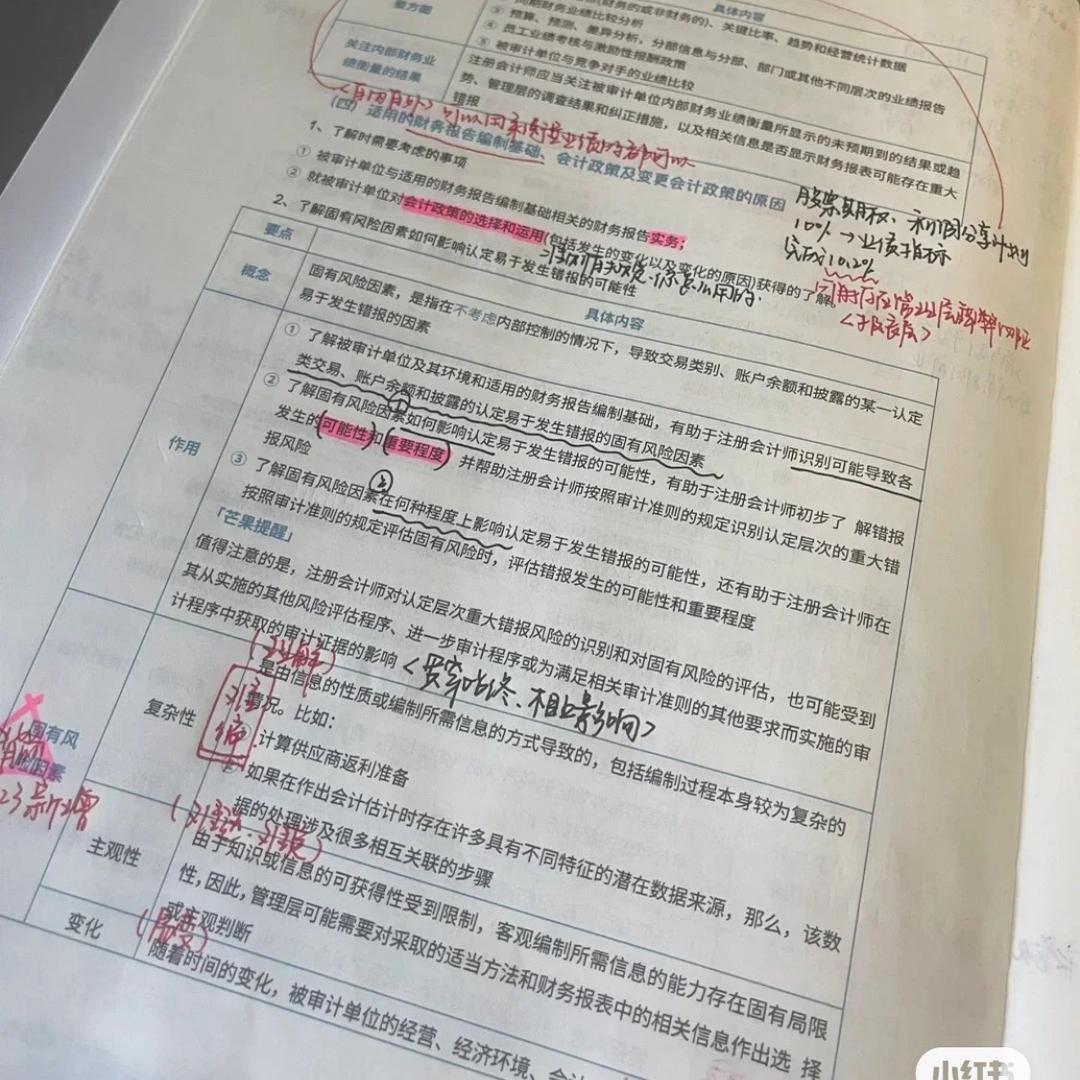 要方面
具体内容
(财务的或非财务的)、关键比率、趋势和经营统计数据
同期财务业绩比较分析
③ 预算、预测、差异分析,分部信息与分部、部门或其他不同层次的业绩报告
④ 员工业绩考核与激励性报酬政策
⑤ 被审计单位与竞争对手的业绩比较
关注内部财务业
绩衡量的结果
注册会计师应当关注被审计单位内部财务业绩衡量所显示的未预期到的结果或趋
势、管理层的调查结果和纠正措施,以及相关信息是否显示财务报表可能存在重大
错报
(四)适用的财务报告编制基础、会计政策及变更会计政策的原因
1、了解时需要考虑的事项
① 被审计单位与适用的财务报告编制基础相关的财务报告实务;
② 就被审计单位对会计政策的选择和运用(包括发生的变化以及变化的原因)获得的了解。
2、了解固有风险因素如何影响认定易于发生错报的可能性
股票期权、利润分享计划
10%→业绩指标
完成10.2%
<报表层>
要点
具体内容
概念
固有风险因素,是指在不考虑内部控制的情况下,导致交易类别、账户余额和披露的某一认定
易于发生错报的因素
作用
① 了解被审计单位及其环境和适用的财务报告编制基础,有助于注册会计师识别可能导致各
类交易、账户余额和披露的认定易于发生错报的固有风险因素
② 了解固有风险因素如何影响认定易于发生错报的可能性,有助于注册会计师初步了 解错报
发生的(可能性)和(重要程度) 并帮助注册会计师按照审计准则的规定识别认定层次的重大错
报风险
③ 了解固有风险因素在何种程度上影响认定易于发生错报的可能性,还有助于注册会计师在
按照审计准则的规定评估固有风险时,评估错报发生的可能性和重要程度
「芒果提醒」
值得注意的是,注册会计师对认定层次重大错报风险的识别和对固有风险的评估,也可能受到
其从实施的其他风险评估程序、进一步审计程序或为满足相关审计准则的其他要求而实施的审
计程序中获取的审计证据的影响
相互影响>
固有风
险因素
23新增
复杂性
是由信息的性质或编制所需信息的方式导致的,包括编制过程本身较为复杂的
情况。比如:
计算供应商返利准备
② 如果在作出会计估计时存在许多具有不同特征的潜在数据来源,那么,该数
据的处理涉及很多相互关联的步骤
主观性
由于知识或信息的可获得性受到限制,客观编制所需信息的能力存在固有局限
性,因此,管理层可能需要对采取的适当方法和财务报表中的相关信息作出选 择
或主观判断
变化
(易变)
随着时间的变化,被审计单位的经营、经济环境、会
小红书